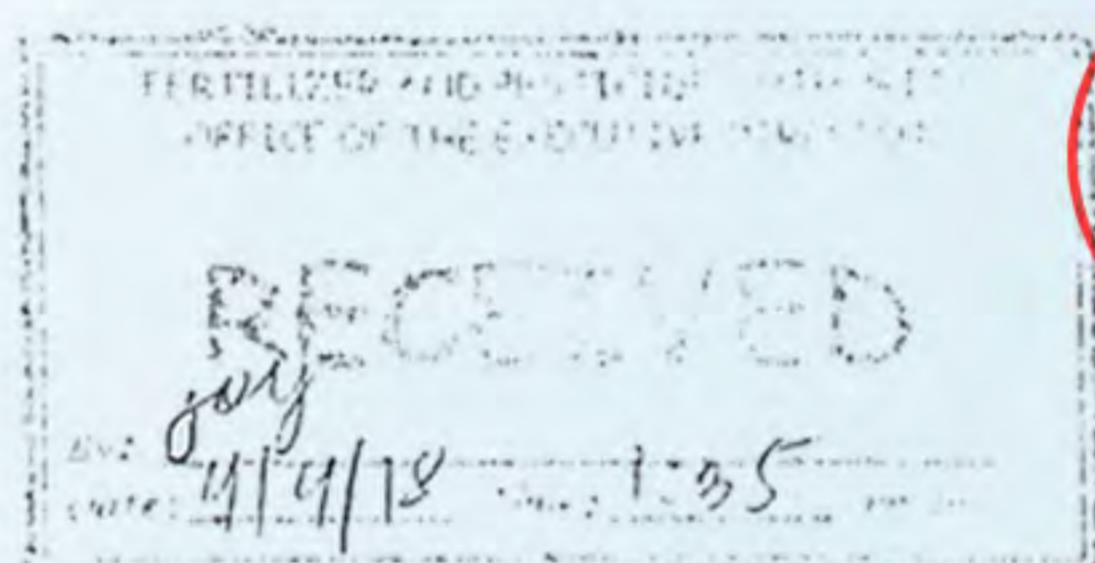 FERTILIZER AND PESTICIDE
OFFICE OF THE EXECUTIVE
RECEIVED
joy
BY:
DATE: 4/4/18 1:35